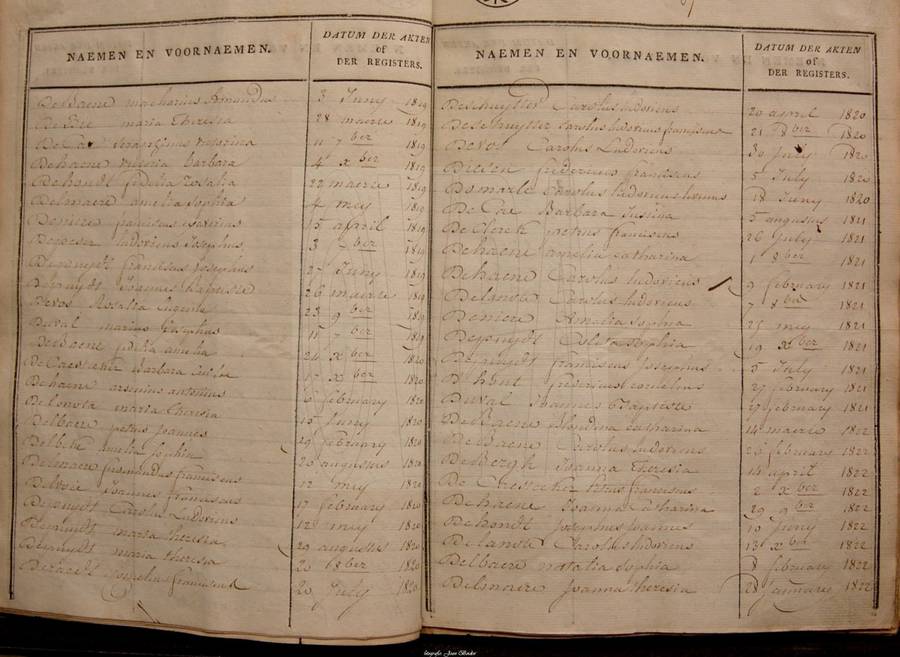 NAEMEN EN VOORNAEMEN.
DATUM DER AKTEN
of
DER REGISTERS.
DeBaene macharius Amandus 3 Juny 1819
maria Theresia 28 maerte 1819
seraphinus victorina 11 7ber 1819
Dehaene victoria barbara 4 xber 1819
Dehondt fidelia Rosalia 22 maerte 1819
Delmaere amelia Sophia 4 mey 1819
Deniere francisca 15 april 1819
ludovicus Josephus 3 8ber 1819
Depuydt franciscus Josephus 27 Juny 1819
Depuydt Joannes Baptiste 26 maerte 1819
Devos Rosalia Eugenia 23 9ber 1819
Duval marius Josephus 11 7ber 1819
DeBaene fidelia amelia 24 xber 1820
DeCaestecker Barbara 17 xber 1820
Dehaene arsenius antonius 6 february 1820
Delanote maria Theresia 15 Juny 1820
Delbaere petrus Joannes 29 february 1820
Amelia Sophia 20 augustus 1820
Delmaere franciscus 12 mey 1820
Joannes franciscus 17 february 1820
Depuydt Carolus Ludovicus 12 mey 1820
Depuydt maria theresia 29 augustus 1820
Depuydt maria theresia 20 8ber 1820
Cornelius franciscus 20 July 1820
NAEMEN EN VOORNAEMEN.
DATUM DER AKTEN
of
DER REGISTERS.
Deschuytter Carolus ludovicus 20 april 1820
Deschuytter Carolus ludovicus franciscus 21 8ber 1820
Devos Carolus Ludovicus 30 July 1820
fredericus franciscus 5 July 1820
Demarle Carolus ludovicus 18 Juny 1820
De Cae Barbara Justina 5 augustus 1821
De Clerck petrus franciscus 26 July 1821
Dehaene amelia catharina 1 8ber 1821
Dehaene Carolus ludovicus 9 february 1821
Delanote Carolus ludovicus 7 8ber 1821
Deniere Amalia Sophia 25 mey 1821
Depuydt Coleta Sophia 19 xber 1821
Depuydt franciscus Josephus 5 July 1821
fredericus cornelius 27 february 1821
Duval Joannes Baptiste 27 february 1821
DeBaene Blondina catharina 14 maerte 1822
DeBaene Carolus ludovicus 23 february 1822
DeBergh Joanna Theresia 16 april 1822
De Caestecker petrus franciscus 2 xber 1822
Dehaene Joanna Catharina 29 9ber 1822
Dehondt Josephus Joannes 10 Juny 1822
Delanote Carolus ludovicus 13 xber 1822
Delbaere natalia Sophia 8 february 1822
Delmaere Joanna theresia 28 January 1822